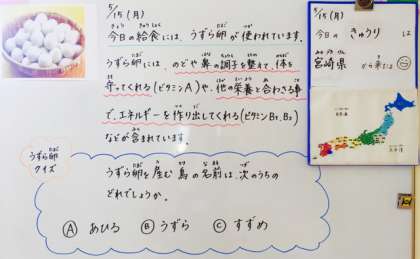 5/15(月)
今日の給食には、うずら卵が使われています。
うずら卵には、のどや鼻の調子を整えて、体を
守ってくれる(ビタミンA)や、他の栄養と合わさる事
で、エネルギーを作り出してくれる(ビタミンB₁、B₂)
などが含まれています。
うずら卵
クイズ
うずら卵を産む鳥の名前は、次のうちの
どれでしょうか。
Ⓐ あひる Ⓑ うずら Ⓒ すずめ
5/15(月)
今日の きゅうり は
宮崎県 から来たよ